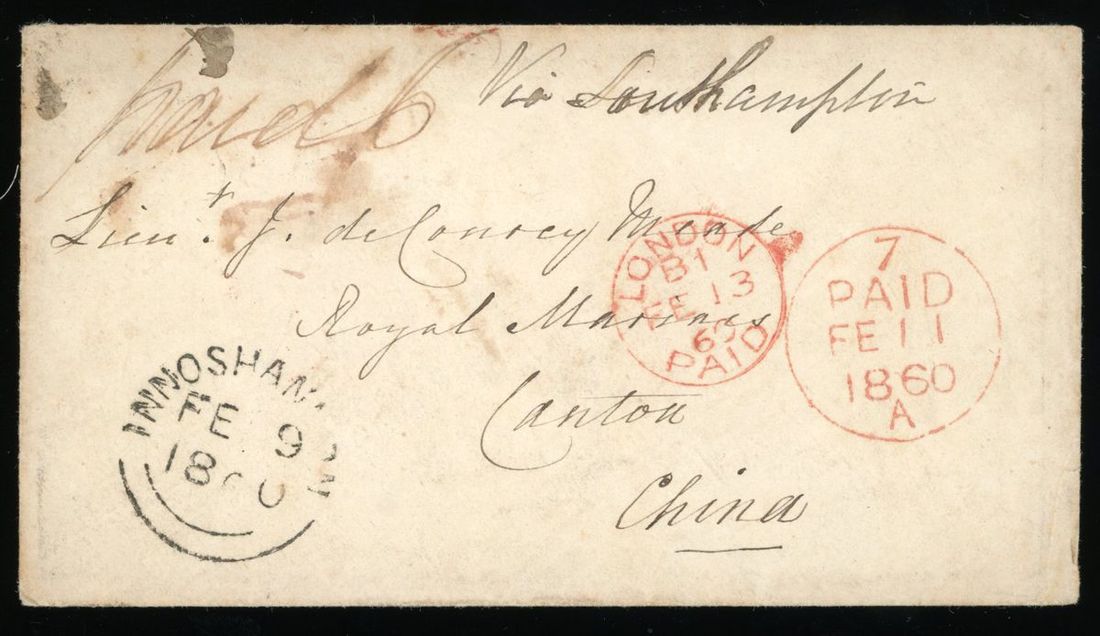 Paid 6
Via Southampton
Lieut. J. de Courcey Meade
Royal Marines
Canton
China
LONDON
B1
FE 13
60
PAID
7
PAID
FE 11
1860
A
INNOSHAN
FE 9
1860